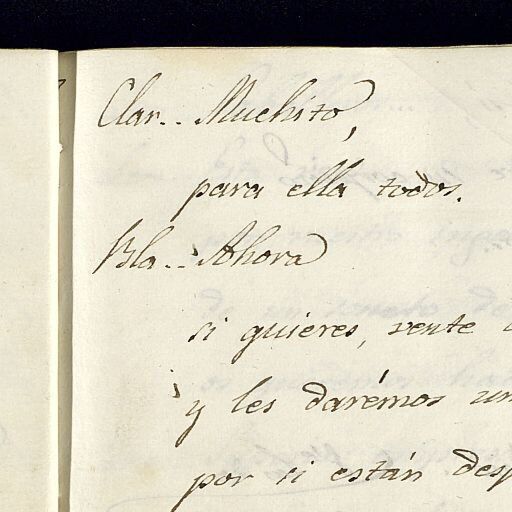 Clar.. Muchito,
para ella todos.
Bla.. Ahora
si quieres, vente
y les darémos un
por si están desp